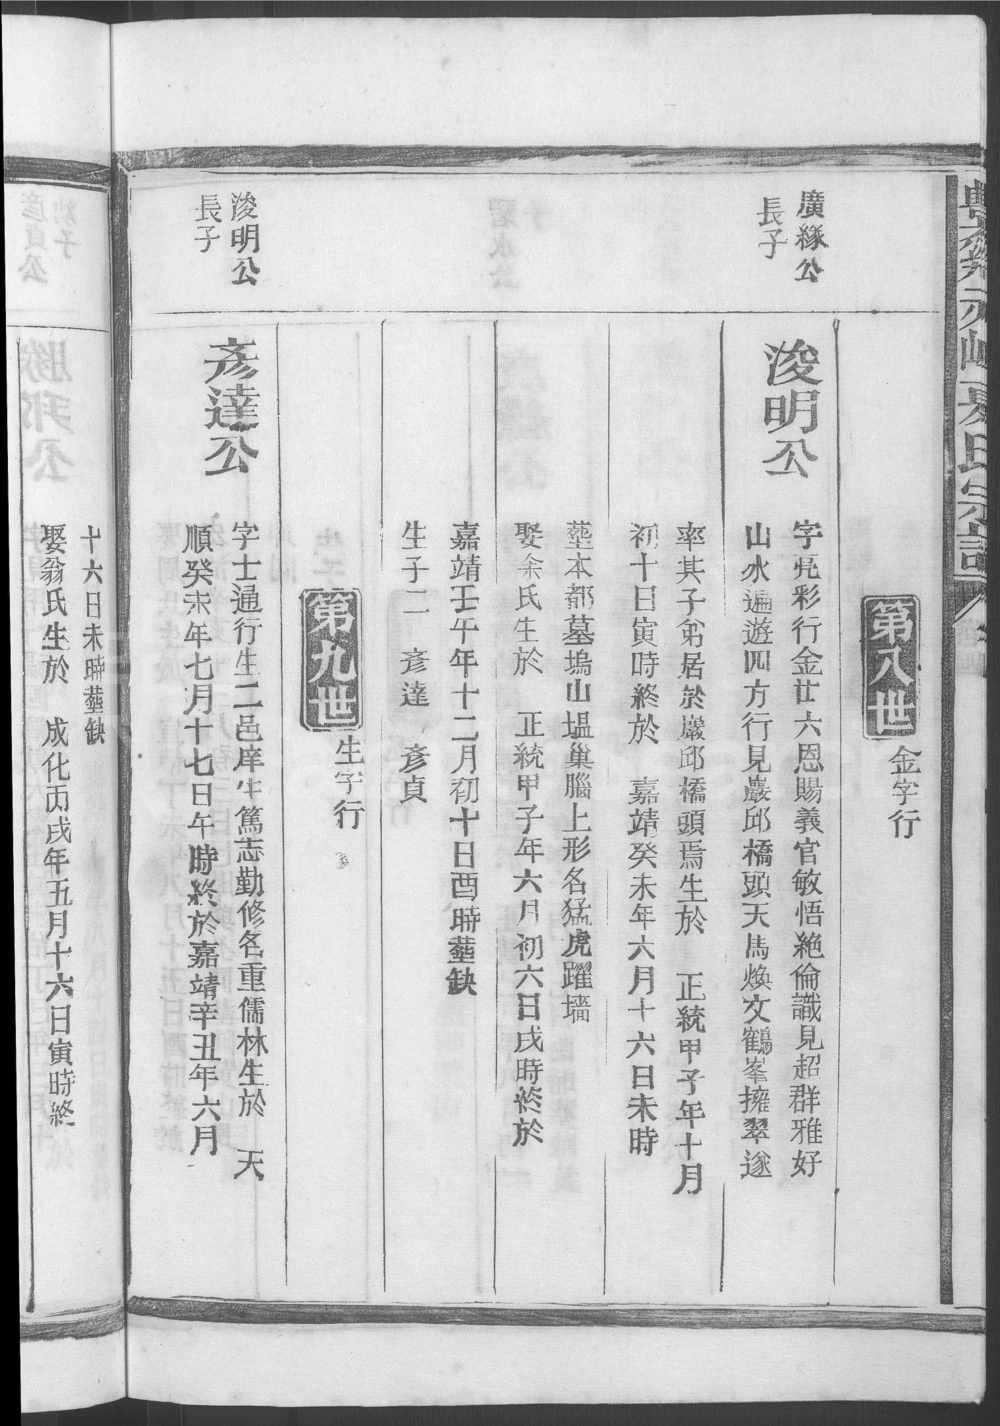 第八世
金字行
廣緣公
長子
浚明公
字亮彩行金廿六恩賜義官敏悟絕倫識見超群雅好
山水遍遊四方行見巖邱橋頭天馬煥文鶴峯擁翠遂
率其子弟居於巖邱橋頭焉生於 正統甲子年十月
初十日寅時終於 嘉靖癸未年六月十六日未時
塟本都墓塢山塭巢腦上形名猛虎躍墻
娶余氏生於 正統甲子年六月初六日戌時終於
嘉靖壬午年十二月初十日酉時塟缺
生子二 彥達 彥貞
第九世
生字行
浚明公
長子
彥達公
字士通行生二邑庠生篤志勤修名重儒林生於 天
順癸未年七月十七日午時終於嘉靖辛丑年六月
十六日未時塟缺
娶翁氏生於 成化丙戌年五月十六日寅時終